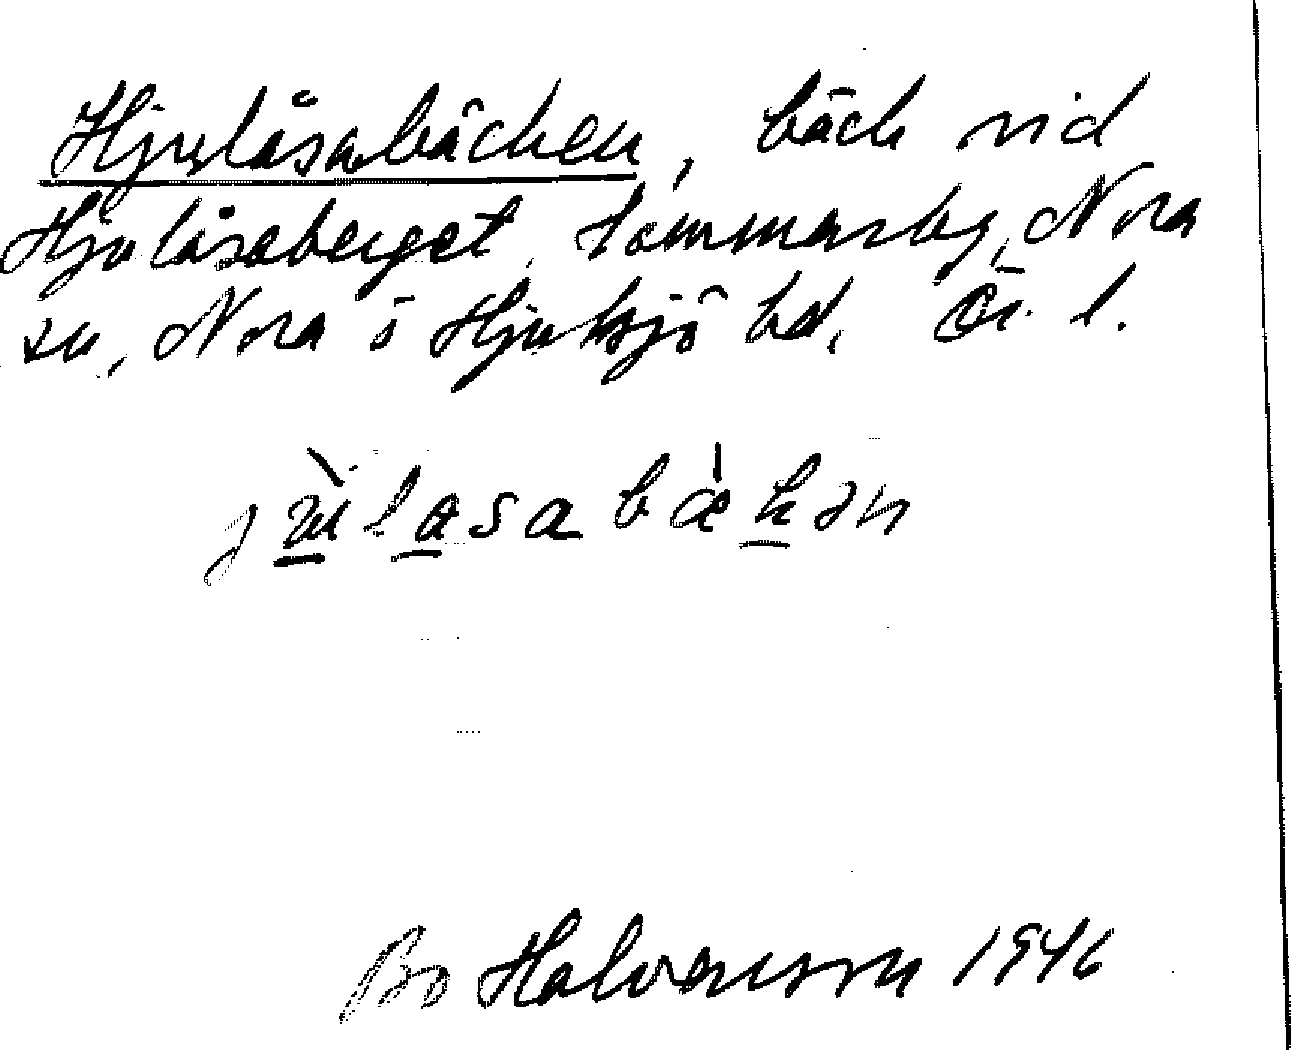 Hjulåsabäcken, bäck vid
Hjulåsaberget, Lämmarby, Nora
sn, Nora o Hjulsjö bd. Ör. l.
bäkən
Bo Halvarsson 1946